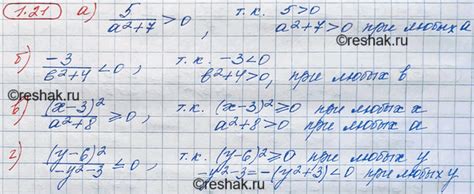 1.21 а) 5/(a²+7) > 0, т.к. 5>0
a²+7>0 при любых a
б) -3/(в²+4) < 0, т.к. -3<0
в²+4>0, при любых в
©reshak.ru
в) (x-3)²/(a²+8) ⩾ 0, т.к. (x-3)²⩾0 при любых x
a²+8>0 при любых a
г) (y-6)²/(-y²-3) ≤ 0, т.к. (y-6)²⩾0 при любых y
-y²-3=-(y²+3)<0 при любых y
©reshak.ru